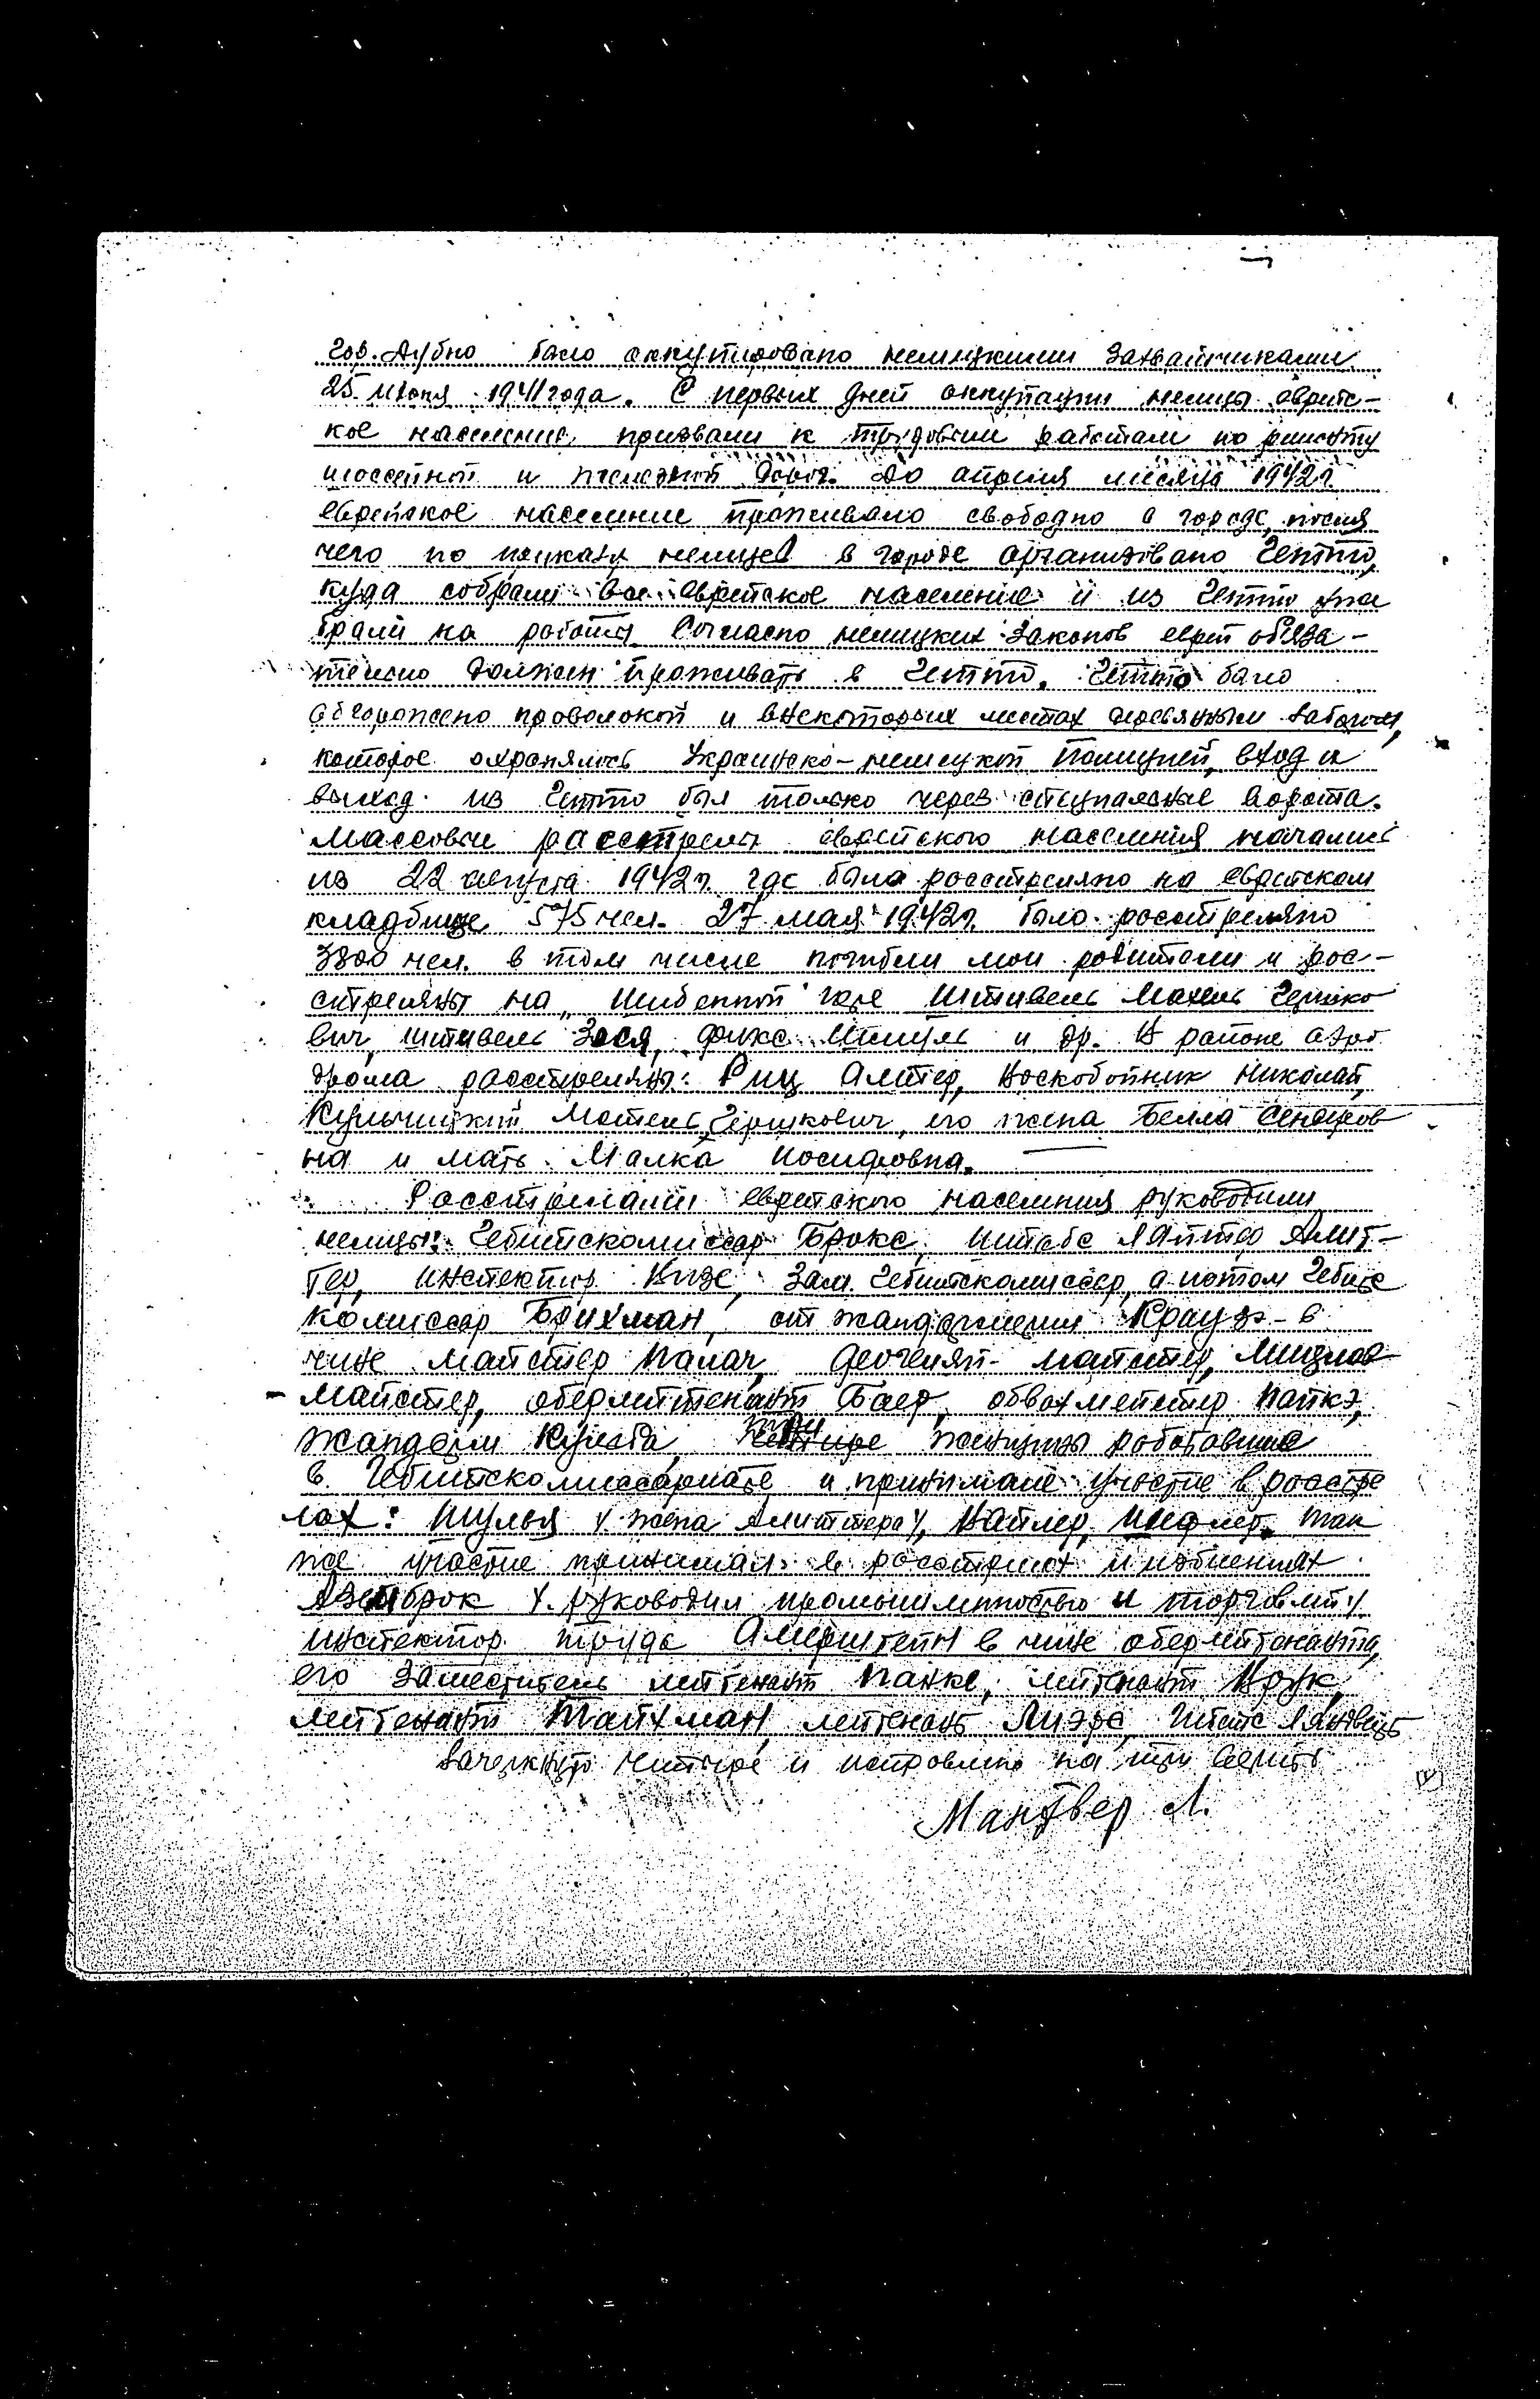 гор. Дубно было оккупировано немецкими захватчиками
25 июня 1941 года. С первых дней оккупации немцы еврейс-
кое население призвали к трудовым работам по ремонту
шоссейной и железной дорог. До апреля месяца 1942 г.
еврейское население проживало свободно в городе, после
чего по приказу немцев в городе организовано Гетто,
куда собрали все еврейское население и из Гетто уже
брали на работы. Согласно немецких законов еврей обяза-
тельно должен проживать в Гетто. Гетто было
обгорожено проволокой и в некоторых местах деревянным забором,
которое охранялось Украинско-немецкой полицией, вход и
выход из Гетто был только через специальные ворота.
Массовые расстрелы еврейского населения начались
из 22 августа 1942 г. где было росстреляно на еврейском
кладбище 575 чел. 27 мая 1942 г. было росстреляно
3800 чел. в том числе погибли мои родители и рос-
стреляны на „Шибенной горе Штивель Мохель Гершко
вич, Штивель Зося, Фукс Шмуль и др. В районе аэро
дрома расстреляны: Риц Алтер, Воскобойник Николай,
Кульчицкий Мотель Гершкович, его жена Белла Сендеров
на и мать Малка Иосифовна.
Росстрелами еврейского населения руководили
немцы: Гебитскомиссар Брокс, штабс ляйтер Алит-
тер, инспектор Визе, зам. Гебитскомиссар, а потом Гебитс
комиссар Брихман, от жандармерии Крауз - в
чине майстер Папач, Деогенят- майстер, Мицлав
- майстер, оберлейтенант Баер, обвахмейстер Папкэ,
жандарм Кульба, три четыре женщины работавшие
в Гебитскомиссариате и принимали участие в росстре
лах: Шульц (жена Алиттера), Вайлер, Инфлер. Так
же участие принимал в росстрелах и избиениях
Азенброк (руководил промышленностью и торговлей)
инспектор труда Амерштейн в чине оберлейтенанта,
его заместитель лейтенант Панке, лейтенант Крук,
лейтенант Тайхман, лейтенант Лиэрс, Штабс Ляндвирт
Зачеркнуто четыре и исправлено на три верить
Мантвер Л.